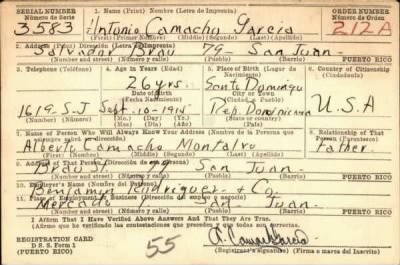 SERIAL NUMBER 1. Name (Print) Nombre (Letra de Imprenta) ORDER NUMBER
Número de Serie Número de Orden
3583 Antonio Camacho Garcia 212A
(First) Nombre (Middle) (Segundo) (Last) Apellido
2. Address (Print) Dirección (Letra de Imprenta)
Salvador Brau 79 - San Juan
Number and street) (Número y calle) (Town) (Pueblo) PUERTO RICO
3. Telephone (Teléfono) 4. Age in Years (Edad) 5. Place of Birth (Lugar de Nacimiento) 6. Country of Citizenship (Ciudadanía)
26 yrs. Santo Domingo
Date of Birth City or Town
(Fecha Nacimiento) (Ciudad o Pueblo)
1619 S-J Sept. 10 - 1915 Rep. Dominicana U.S.A
(Mo) (Day) (Yr.) State or country
(Mes) (Día) (Año) (Estado o país)
7. Name of Person Who Will Always Know Your Address (Nombre de la Persona que 8. Relationship of That Person (Parentesco)
Alberto Camacho Montalvo Father
(First) (Nombre) (Middle) (Segundo) (Last) (Apellido)
9. Address of That Person (Dirección de esa persona)
Brau St. 79 San Juan
Number and street (Número y calle) (Town) (Pueblo) PUERTO RICO
10. Employer's Name (Nombre del Patrono)
Benjamin Rodriguez & Co.
11. Place of Employment or Business (Dirección del empleo o negocio)
Mercado San Juan
Number and street (Número y calle) (Town) (Pueblo) PUERTO RICO
I Affirm That I Have Verified Above Answers And That They Are True.
(Afirmo que he verificado las contestaciones que preceden y que todas son ciertas)
REGISTRATION CARD
D. S. Form 1
(PUERTO RICO) 55 Registrant's signature) (Firma o marca del Inscrito)